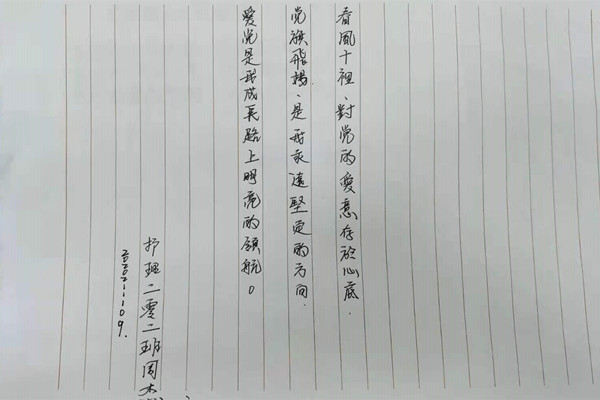 春風十裡、對党的愛意存於心底.
党旗飛揚、是我永遠堅定的方向.
愛党是我成長路上明亮的領航。
护理二零二班周杰
20221109.